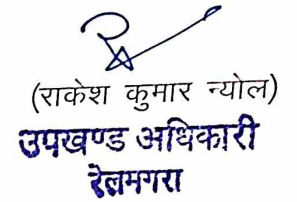 (राकेश कुमार न्योल)
उपखण्ड अधिकारी
रेलमगरा